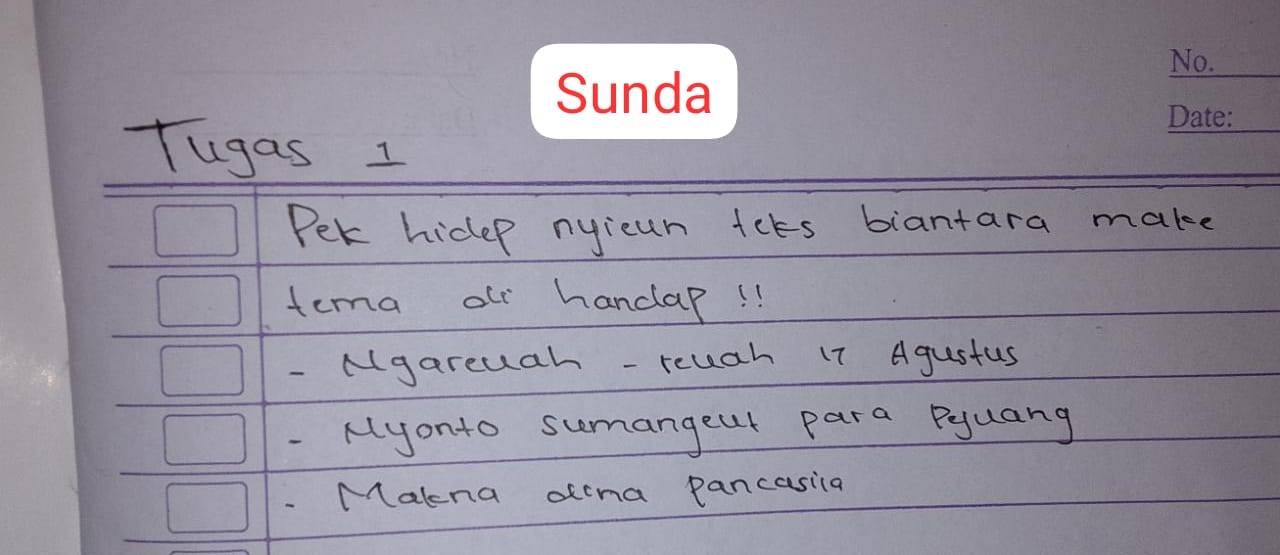 Sunda
No.
Date:
Tugas 1
Pek hidep nyieun teks biantara make
tema di handap !!
- Ngareuah - reuah 17 Agustus
- Nyonto sumangeut para Pejuang
- Makna dina pancasila